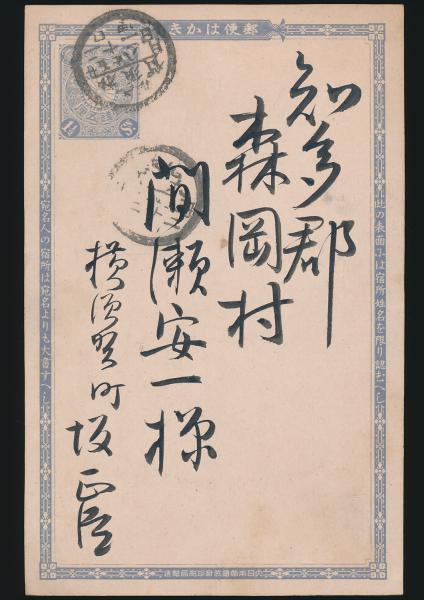 郵便はがき
此の表面には宿所姓名を限り認むへし
知多郡
森岡村
間瀬安一様
横須賀町
坂
宛名人の宿所は宛名よりも大書すへし
1½ Sn
大日本帝國政府印刷局製造